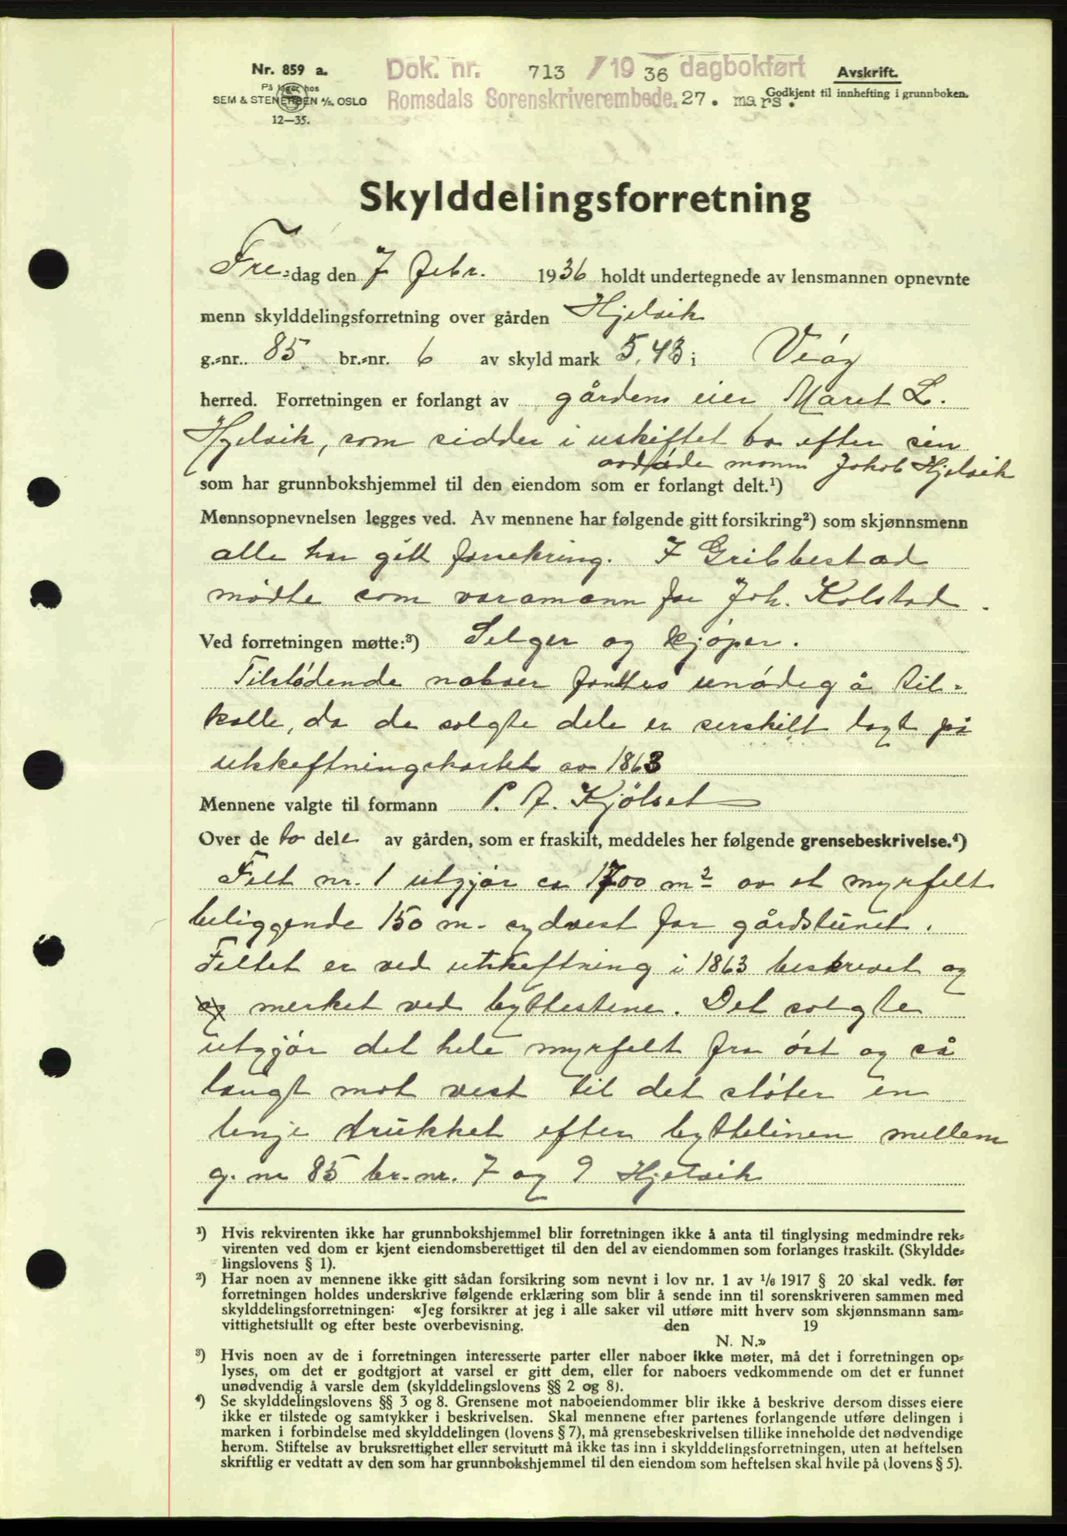 Nr. 859 a.
På lager hos
SEM & STENERSEN A/S, OSLO
12—35.
Dok. nr. 713 / 1936 dagbokført
Romsdals Sorenskriverembede. 27. mars.
Avskrift.
Godkjent til innhefting i grunnboken.
Skylddelingsforretning
Fre-dag den 7 febr. 1936 holdt undertegnede av lensmannen opnevnte
menn skylddelingsforretning over gården Hjelvik
g.-nr. 85 br.-nr. 6 av skyld mark 5,43 i Veöy
herred. Forretningen er forlangt av gårdens eier Maret L.
Hjelvik, som sidder i uskiftet bo efter sin
avdøde mann Jakob Hjelvik
som har grunnbokshjemmel til den eiendom som er forlangt delt.¹)
Mennsopnevnelsen legges ved. Av mennene har følgende gitt forsikring²) som skjønnsmenn
alle har gitt forsikring. F Gribbestad
mödte som varamann for Joh. Kolstad.
Ved forretningen møtte:³) Selger og kjöper.
Tilstödende naboer fantes unödig å til-
kalle, da de solgte dele er serskilt lagt på
utskiftningskartet av 1863
Mennene valgte til formann P. A. Kjölset
Over de to dele av gården, som er fraskilt, meddeles her følgende grensebeskrivelse.⁴)
Felt nr. 1 utgjör ca 1700 m² av et myrfelt
beliggende 150 m. sydvest for gårdstunet.
Feltet er ved utskiftning i 1863 beskrevet og
og merket ved byttestene. Det solgte
utgjör det hele myrfelt fra öst og så
langt mot vest til det stöter en
linje trukket efter byttelinen mellem
g. nr 85 br. nr. 7 og 9 Hjelvik
¹) Hvis rekvirenten ikke har grunnbokshjemmel blir forretningen ikke å anta til tinglysing medmindre rek-
virenten ved dom er kjent eiendomsberettiget til den del av eiendommen som forlanges fraskilt. (Skyldde-
lingslovens § 1).
²) Har noen av mennene ikke gitt sådan forsikring som nevnt i lov nr. 1 av 1/6 1917 § 20 skal vedk. før
forretningen holdes underskrive følgende erklæring som blir å sende inn til sorenskriveren sammen med
skylddelingsforretningen: «Jeg forsikrer at jeg i alle saker vil utføre mitt hverv som skjønnsmann sam-
vittighetsfullt og efter beste overbevisning. den 19
N. N.»
³) Hvis noen av de i forretningen interesserte parter eller naboer ikke møter, må det i forretningen op-
lyses, om det er godtgjort at varsel er gitt dem, eller for naboers vedkommende om det er funnet
unødvendig å varsle dem (skylddelingslovens §§ 2 og 8).
⁴) Se skylddelingslovens §§ 3 og 8. Grensene mot naboeiendommer blir ikke å beskrive dersom disses eiere
ikke er tilstede og samtykker i beskrivelsen. Skal mennene efter partenes forlangende utføre delingen i
marken i forbindelse med skylddelingen (lovens § 7), må grensebeskrivelsen tillike inneholde det nødvendige
herom. Stiftelse av bruksrettighet eller servitutt må ikke tas inn i skylddelingsforretningen, uten at heftelsen
skriftlig er vedtatt av den som har grunnbokshjemmel til den eiendom som heftelsen skal hvile på (lovens § 5).